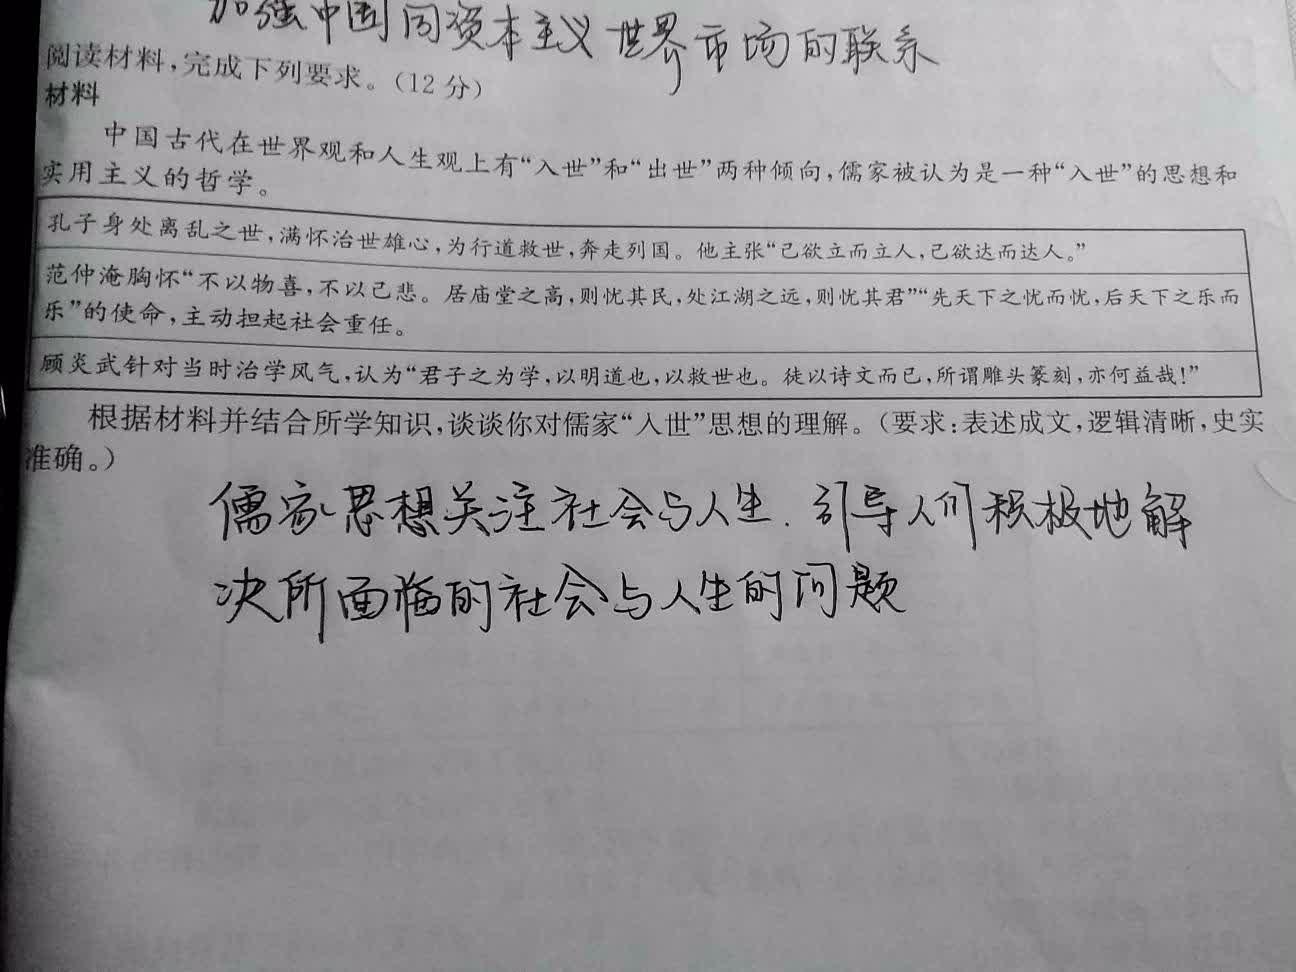 加强中国同资本主义世界市场的联系
阅读材料，完成下列要求。（12分）
材料
中国古代在世界观和人生观上有“入世”和“出世”两种倾向，儒家被认为是一种“入世”的思想和
实用主义的哲学。
孔子身处离乱之世，满怀治世雄心，为行道救世，奔走列国。他主张“己欲立而立人，己欲达而达人。”
范仲淹胸怀“不以物喜，不以己悲。居庙堂之高，则忧其民，处江湖之远，则忧其君”“先天下之忧而忧，后天下之乐而
乐”的使命，主动担起社会重任。
顾炎武针对当时治学风气，认为“君子之为学，以明道也，以救世也。徒以诗文而已，所谓雕头篆刻，亦何益哉！”
根据材料并结合所学知识，谈谈你对儒家“入世”思想的理解。（要求：表述成文，逻辑清晰，史实
准确。）
儒家思想关注社会与人生．引导人们积极地解
决所面临的社会与人生的问题